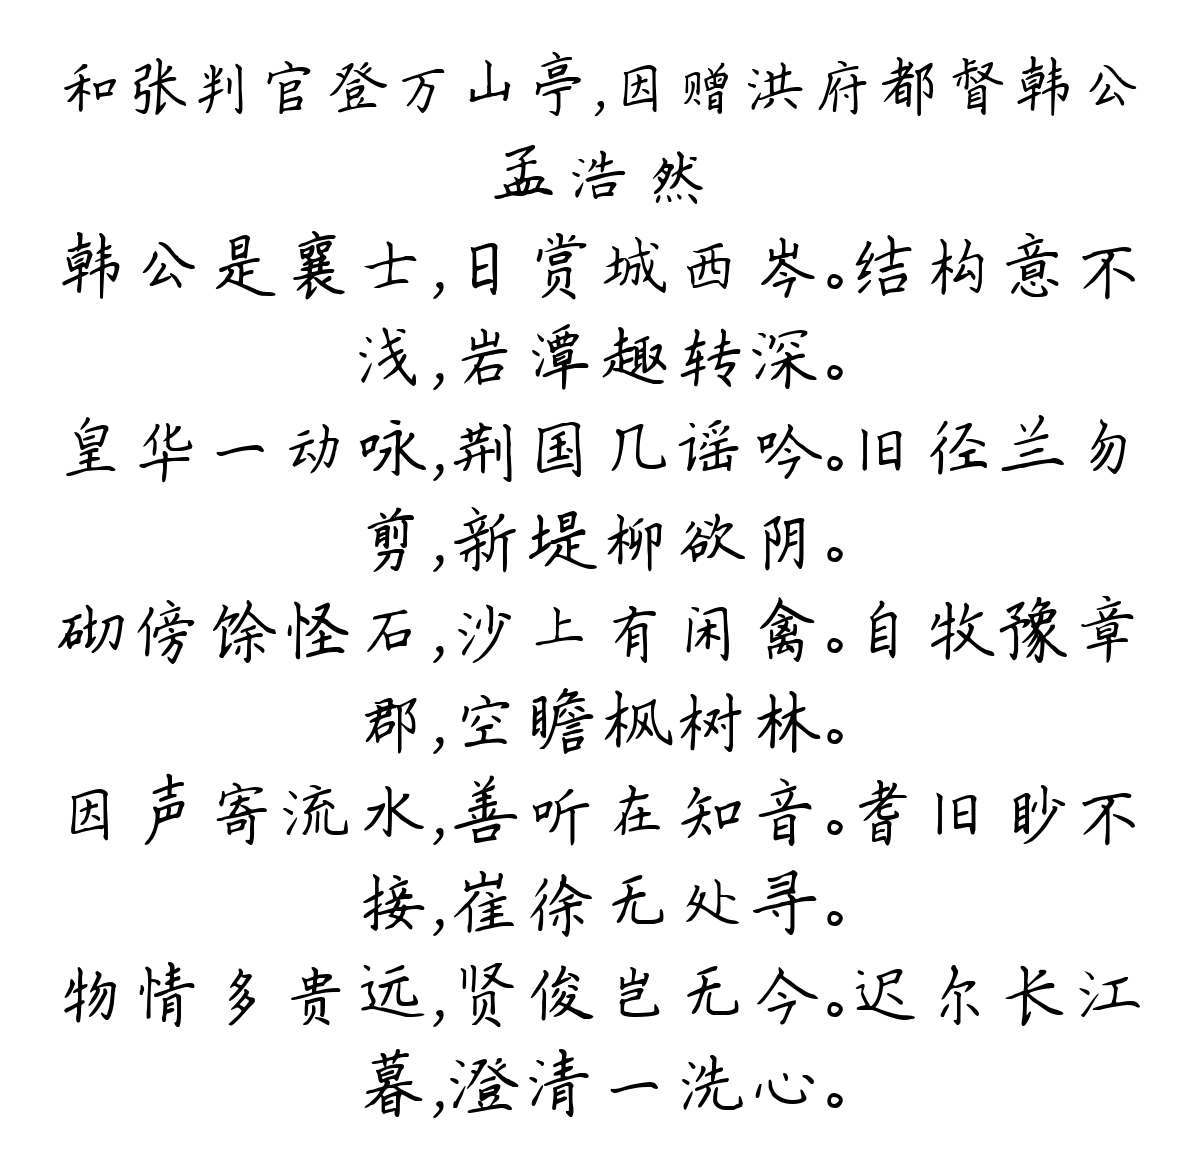 和张判官登万山亭,因赠洪府都督韩公
孟浩然
韩公是襄士,日赏城西岑。结构意不
浅,岩潭趣转深。
皇华一动咏,荆国几谣吟。旧径兰勿
剪,新堤柳欲阴。
砌傍馀怪石,沙上有闲禽。自牧豫章
郡,空瞻枫树林。
因声寄流水,善听在知音。耆旧眇不
接,崔徐无处寻。
物情多贵远,贤俊岂无今。迟尔长江
暮,澄清一洗心。